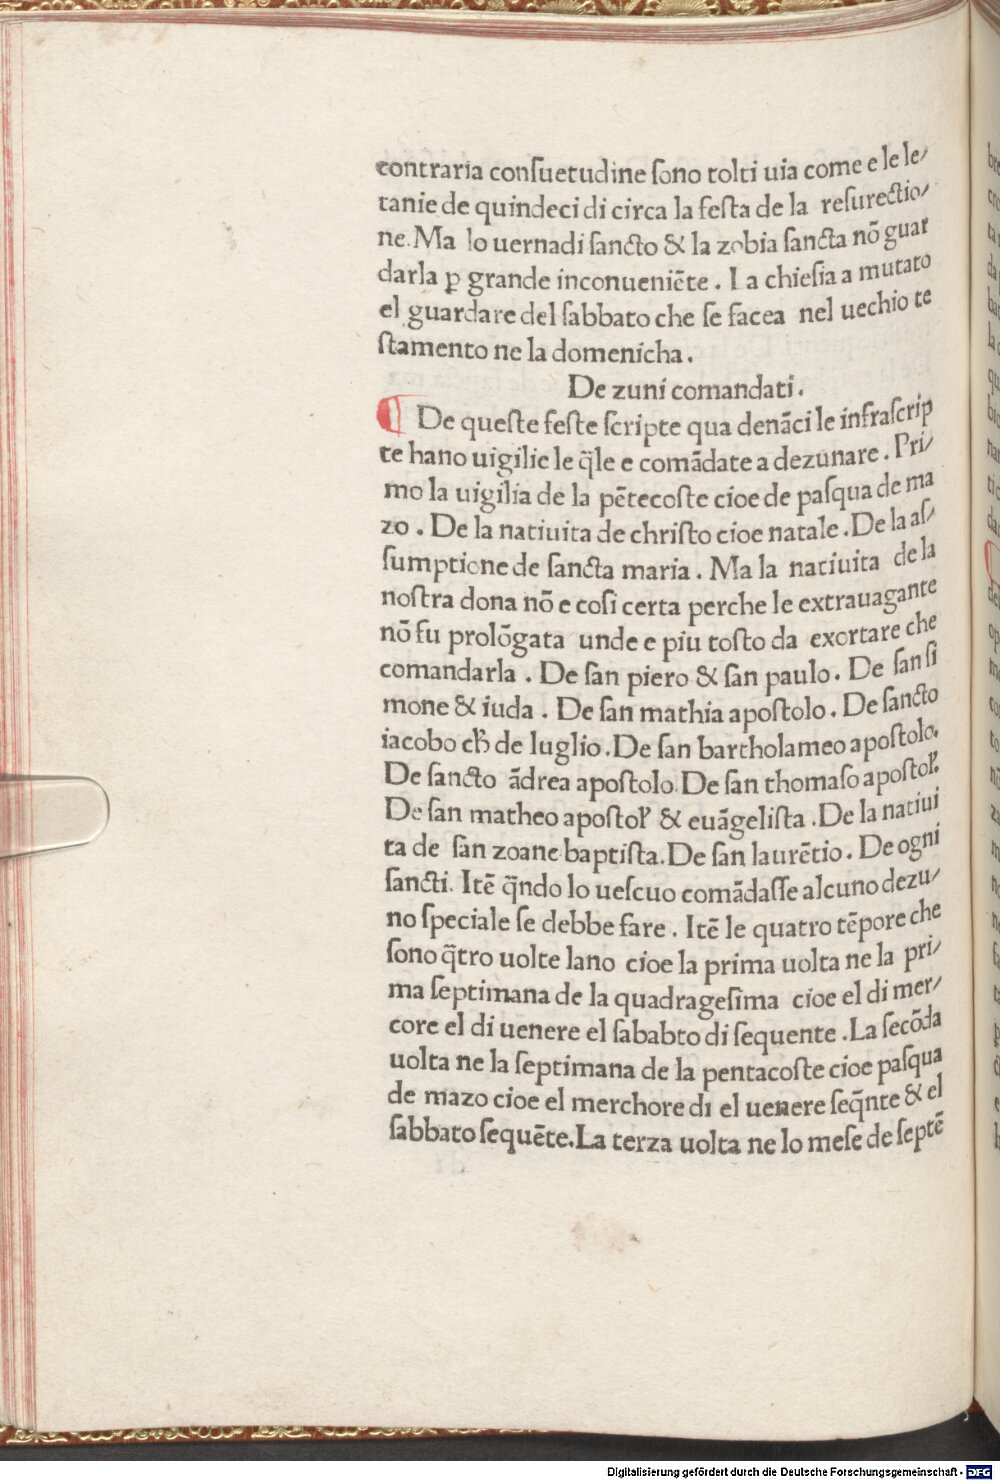 contraria conſuetudine ſono tolti uia come e le le/
tanie de quindeci di circa la feſta de la reſurectio/
ne. Ma lo uernadi ſancto & la zobia ſancta nō guar
darla ꝑ grande inconueniēte . La chieſia a mutato
el guardare del ſabbato che ſe facea nel uechio te
ſtamento ne la domenicha .
De zuni comandati .
¶ De queſte feſte ſcripte qua denāci le infraſcrip
te hano uigilie le q̄le e comādate a dezunare . Pri/
mo la uigilia de la pētecoſte cioe de paſqua de ma
zo . De la natiuita de chriſto cioe natale . De la aſ/
ſumptione de ſancta maria . Ma la natiuita de la
noſtra dona nō e coſi certa perche le extrauagante
nō fu prolōgata unde e piu toſto da exortare che
comandarla . De ſan piero & ſan paulo . De ſan ſi
mone & iuda . De ſan mathia apoſtolo . De ſancto
iacobo cħ de luglio . De ſan bartholameo apoſtolo.
De ſancto ādrea apoſtolo. De ſan thomaſo apoſtoꝉ.
De ſan matheo apoſtoꝉ & euāgeliſta . De la natiui
ta de ſan zoane baptiſta. De ſan laurētio . De ogni
ſancti. Itē q̄ndo lo ueſcuo comādaſſe alcuno dezu/
no ſpeciale ſe debbe fare . Itē le quatro tēpore che
ſono q̄tro uolte lano cioe la prima uolta ne la pri/
ma ſeptimana de la quadrageſima cioe el di mer/
core el di uenere el ſababto di ſequente . La ſecōda
uolta ne la ſeptimana de la pentacoſte cioe paſqua
de mazo cioe el merchore di el uenere ſeq̄nte & el
ſabbato ſequēte. La terza uolta ne lo meſe de ſeptē
Digitalisierung gefördert durch die Deutsche Forschungsgemeinschaft - DFG